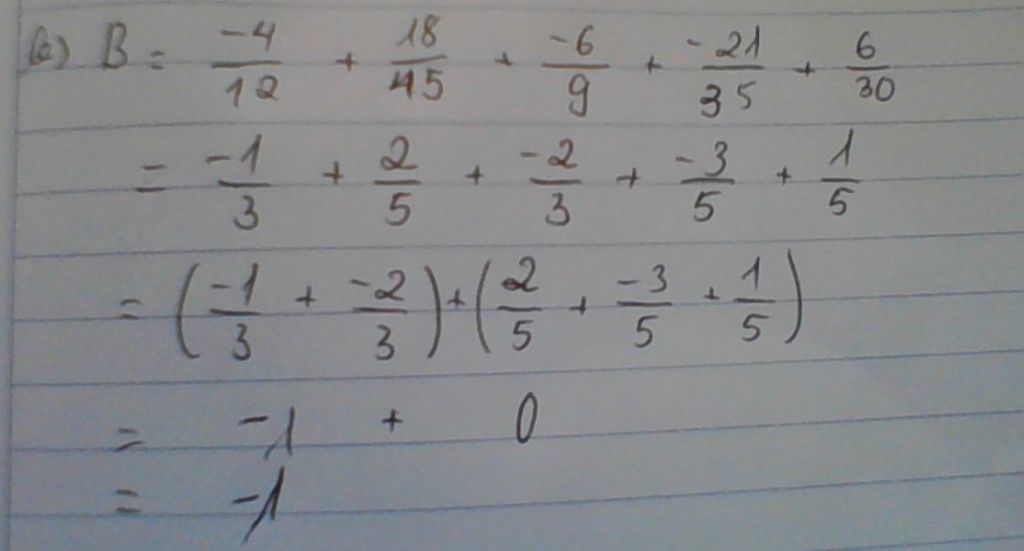 b) B = -4/12 + 18/45 + -6/9 + -21/35 + 6/30
= -1/3 + 2/5 + -2/3 + -3/5 + 1/5
= (-1/3 + -2/3) + (2/5 + -3/5 + 1/5)
= -1 + 0
= -1